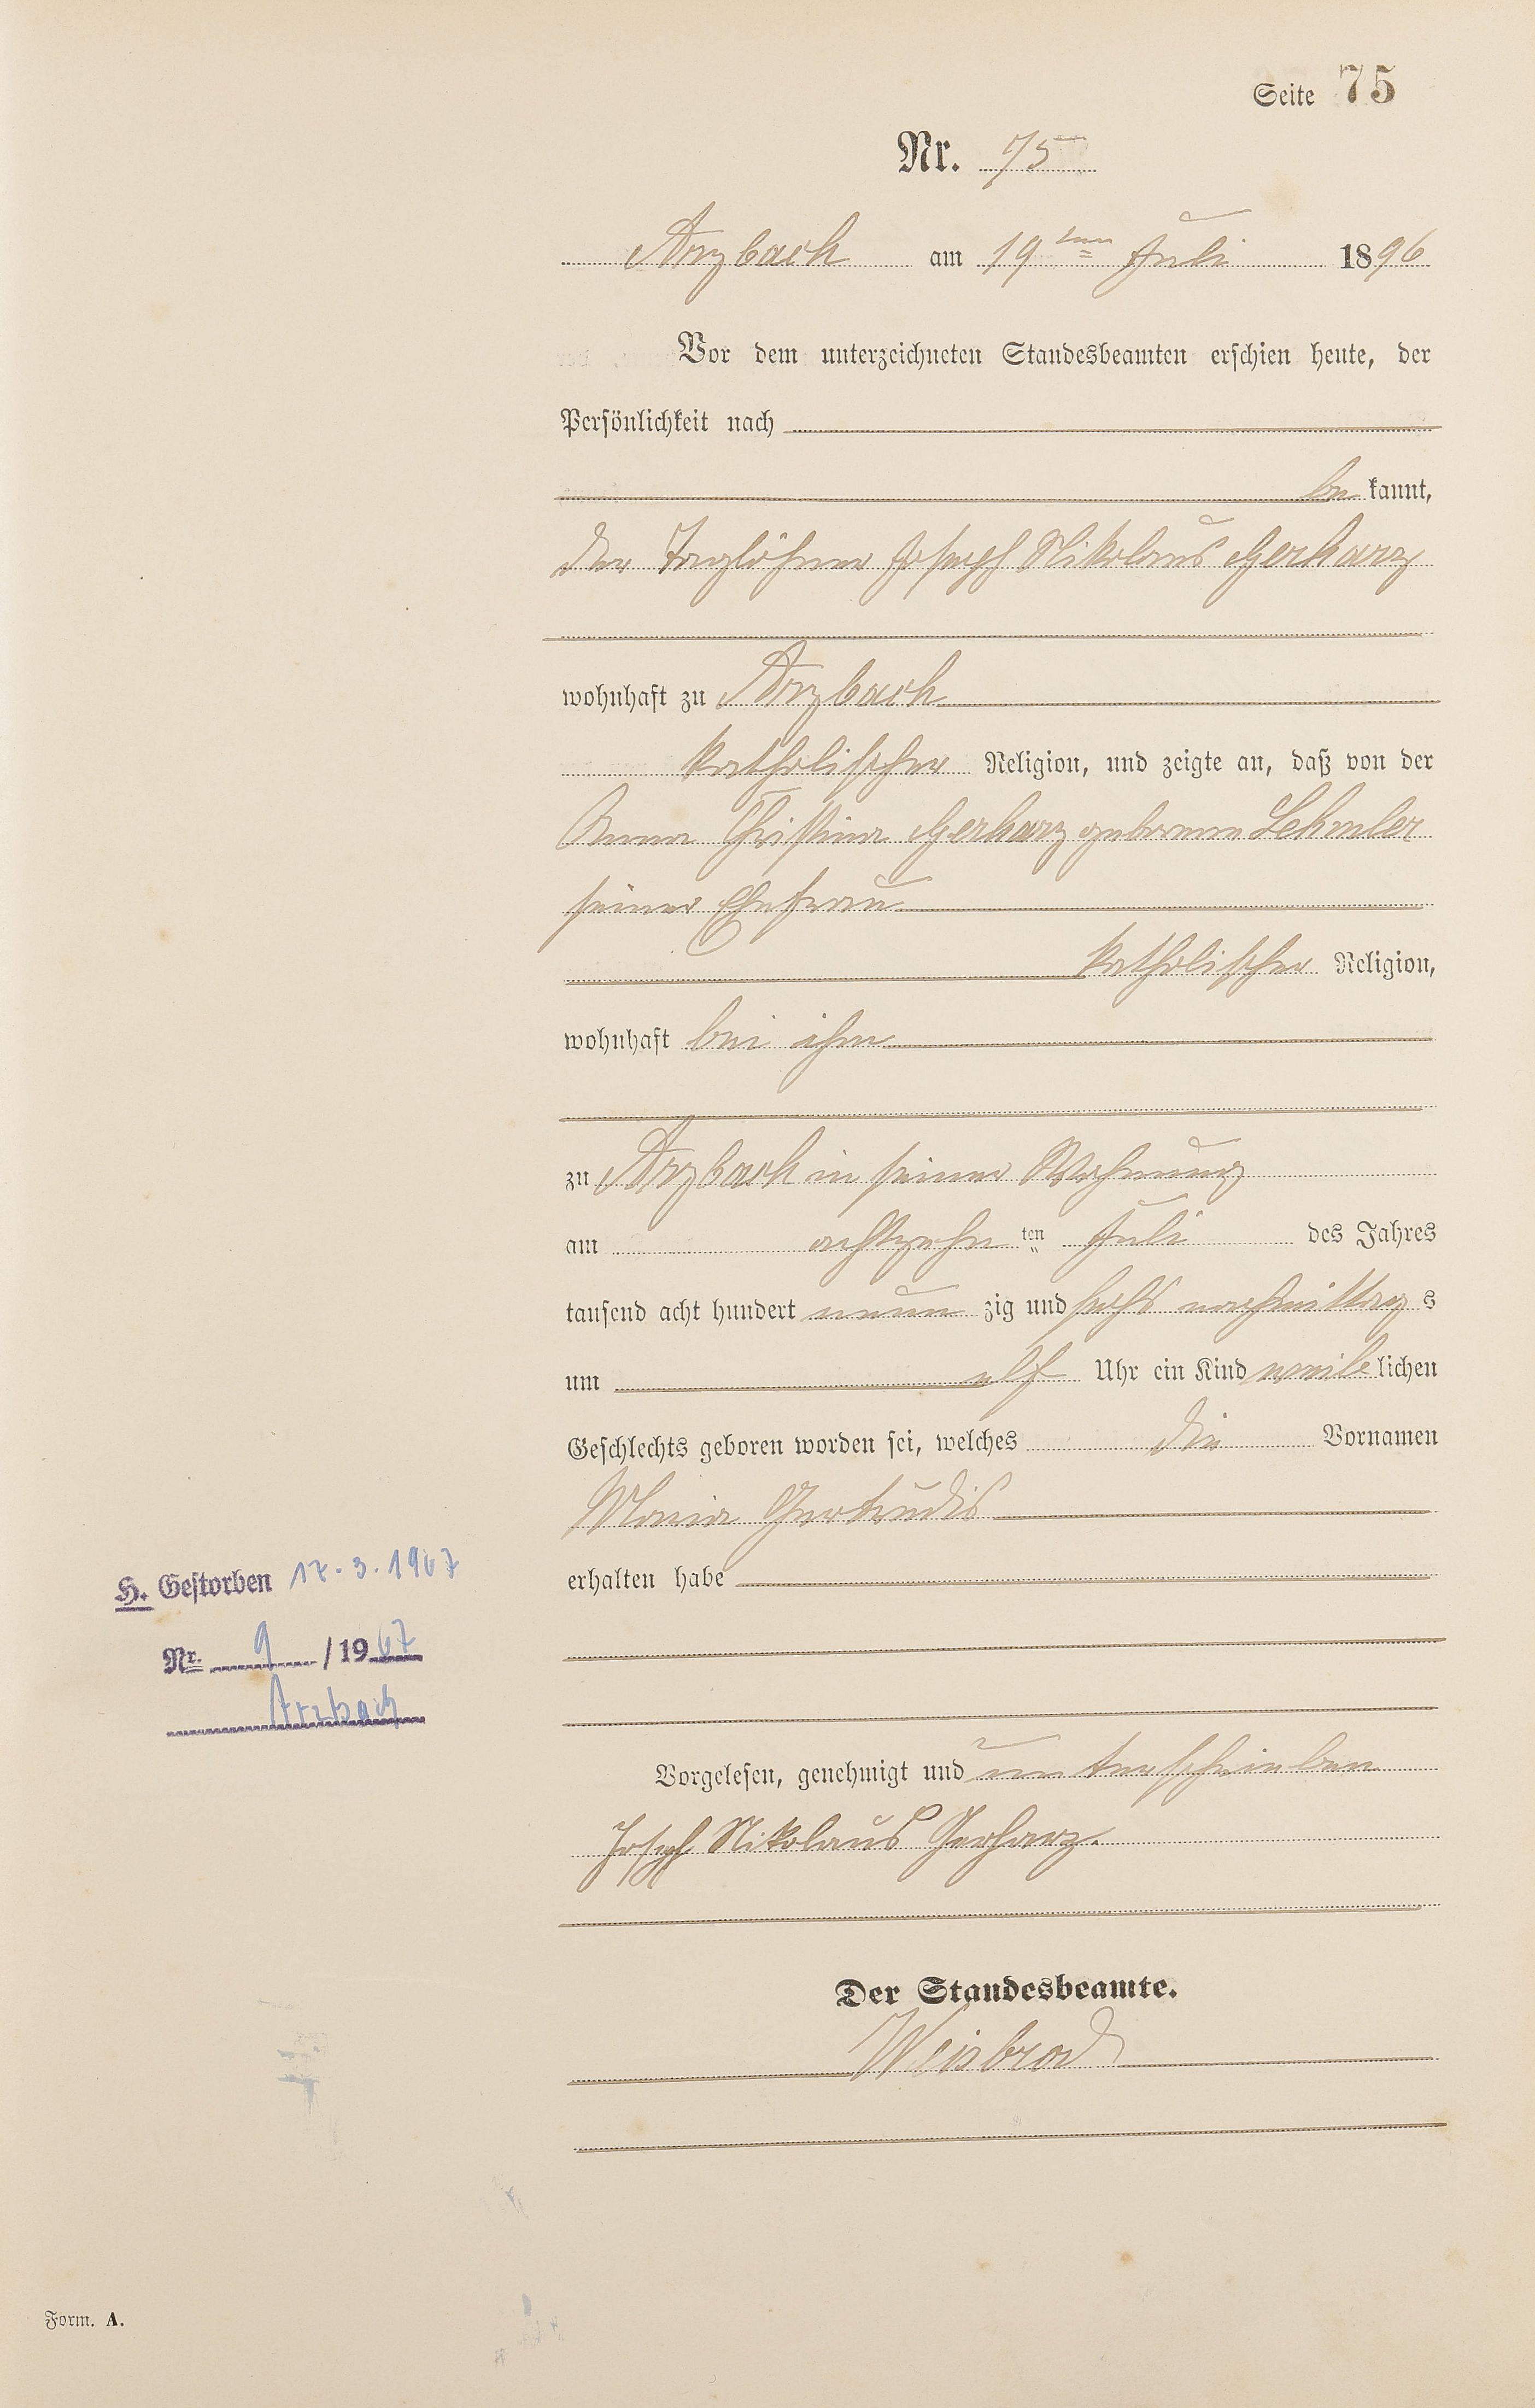 Seite 75
Nr. 75
Arzbach am 19ten Juli 1896
Vor dem unterzeichneten Standesbeamten erschien heute, der
Persönlichkeit nach
bekannt,
der Taglöhner Joseph Nikolaus Gerharz
wohnhaft zu Arzbach
katholischer Religion, und zeigte an, daß von der
Anna Christina Gerharz geborene Lehmler
seiner Ehefrau
katholischer Religion,
wohnhaft bei ihm
zu Arzbach in seiner Wohnung
am achtzehn ten Juli des Jahres
tausend acht hundert neun zig und sechs nachmittag s
um elf Uhr ein Kind weiblichen
Geschlechts geboren worden sei, welches die Vornamen
Maria Gertrudis
erhalten habe
H. Gestorben 17.3.1967
Nr. 9 / 1967
Arzbach
Vorgelesen, genehmigt und unterschrieben
Joseph Nikolaus Gerharz.
Der Standesbeamte.
Weisbrod
Form. A.